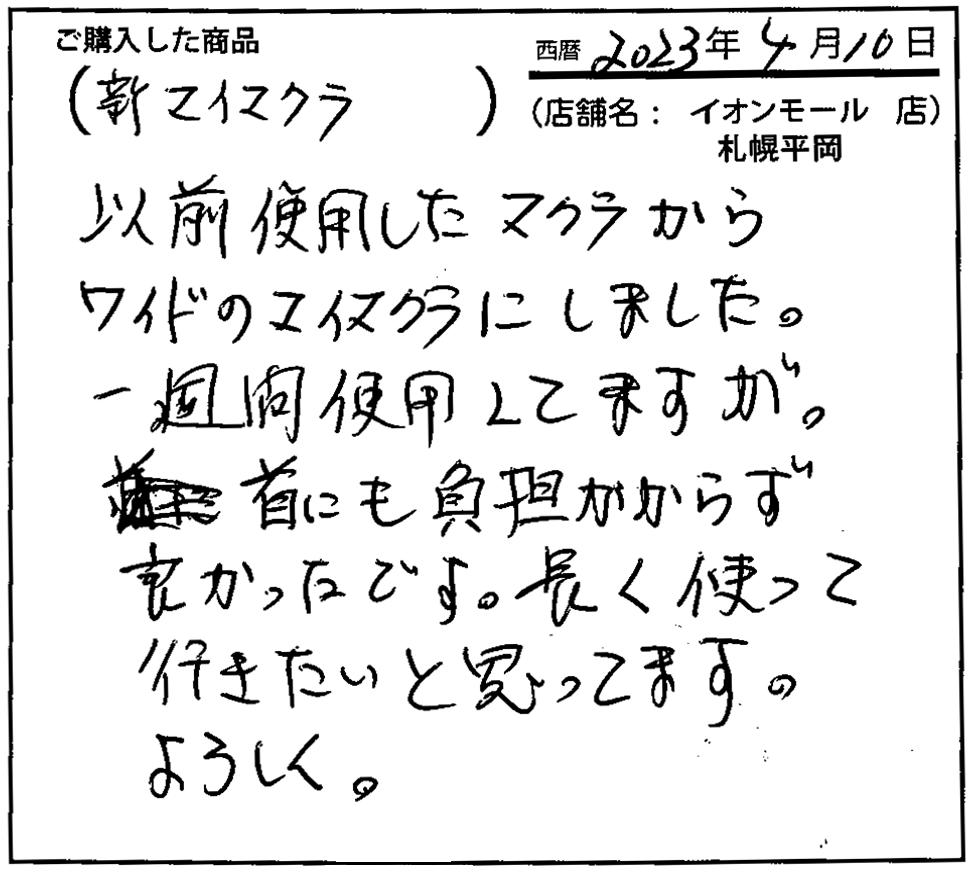 ご購入した商品
西暦 2023年4月10日
(新マイマクラ)
(店舗名: イオンモール 店)
札幌平岡
以前使用したマクラから
ワイドのマイマクラにしました。
一週間使用してますが。
首にも負担がからず
良かったです。長く使って
行きたいと思ってます。
よろしく。